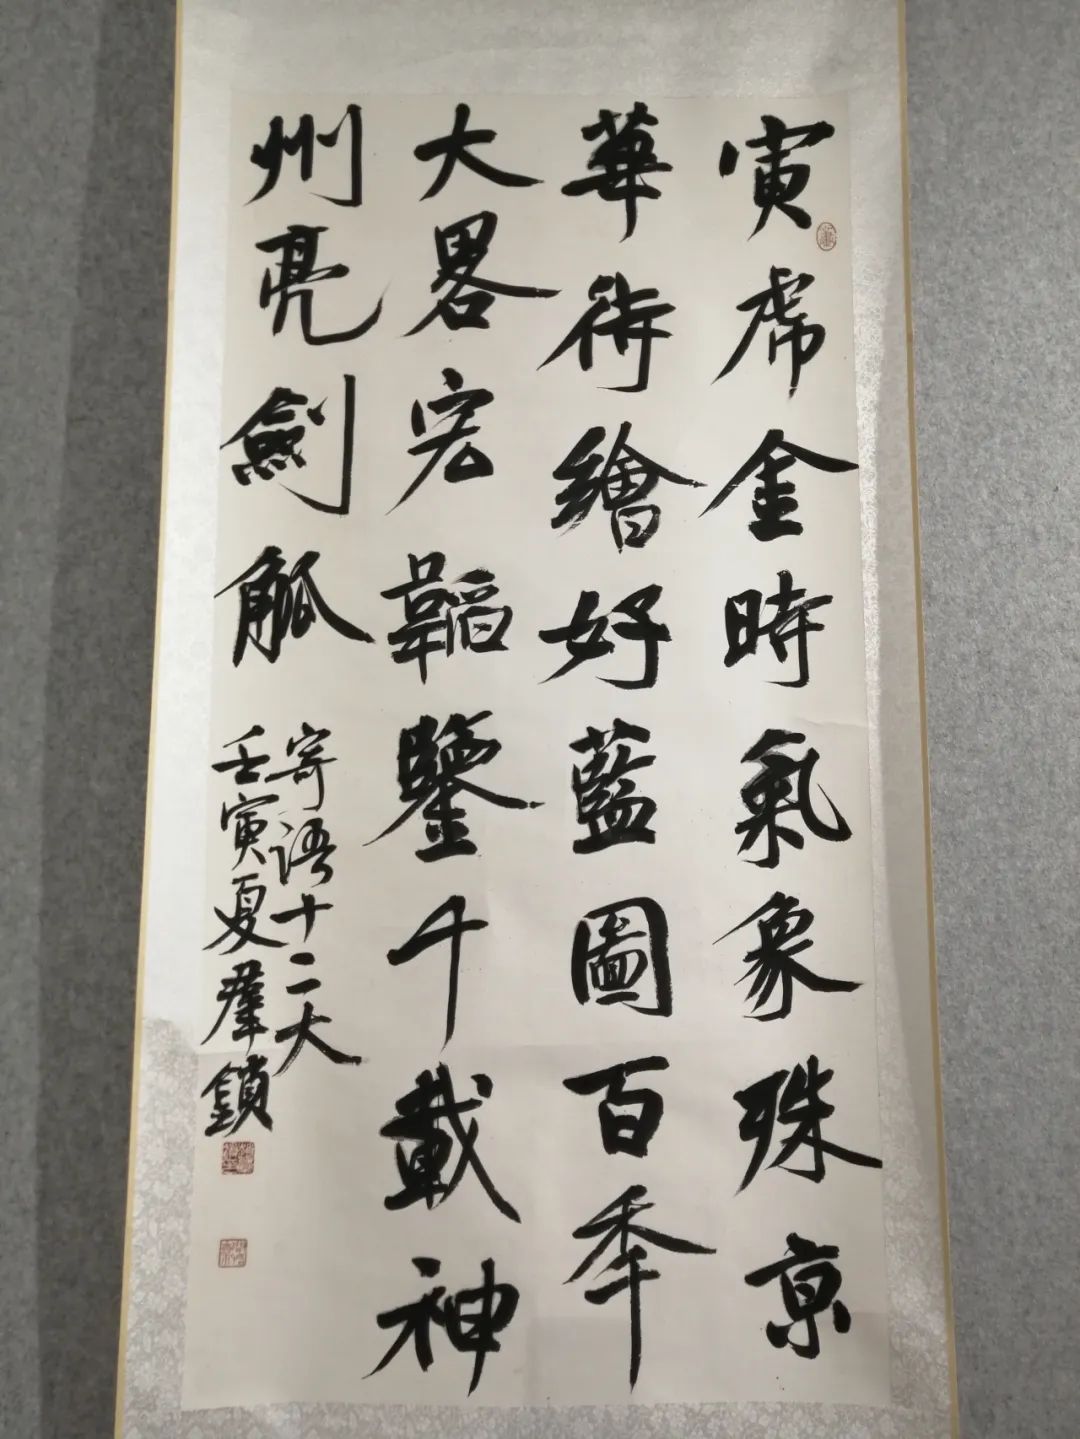 寅虎金時氣象殊京
華繪好藍圖百年
大畧宏韜鑒千載神
州亮劍觚
寄語十二大
壬寅夏羣鎖